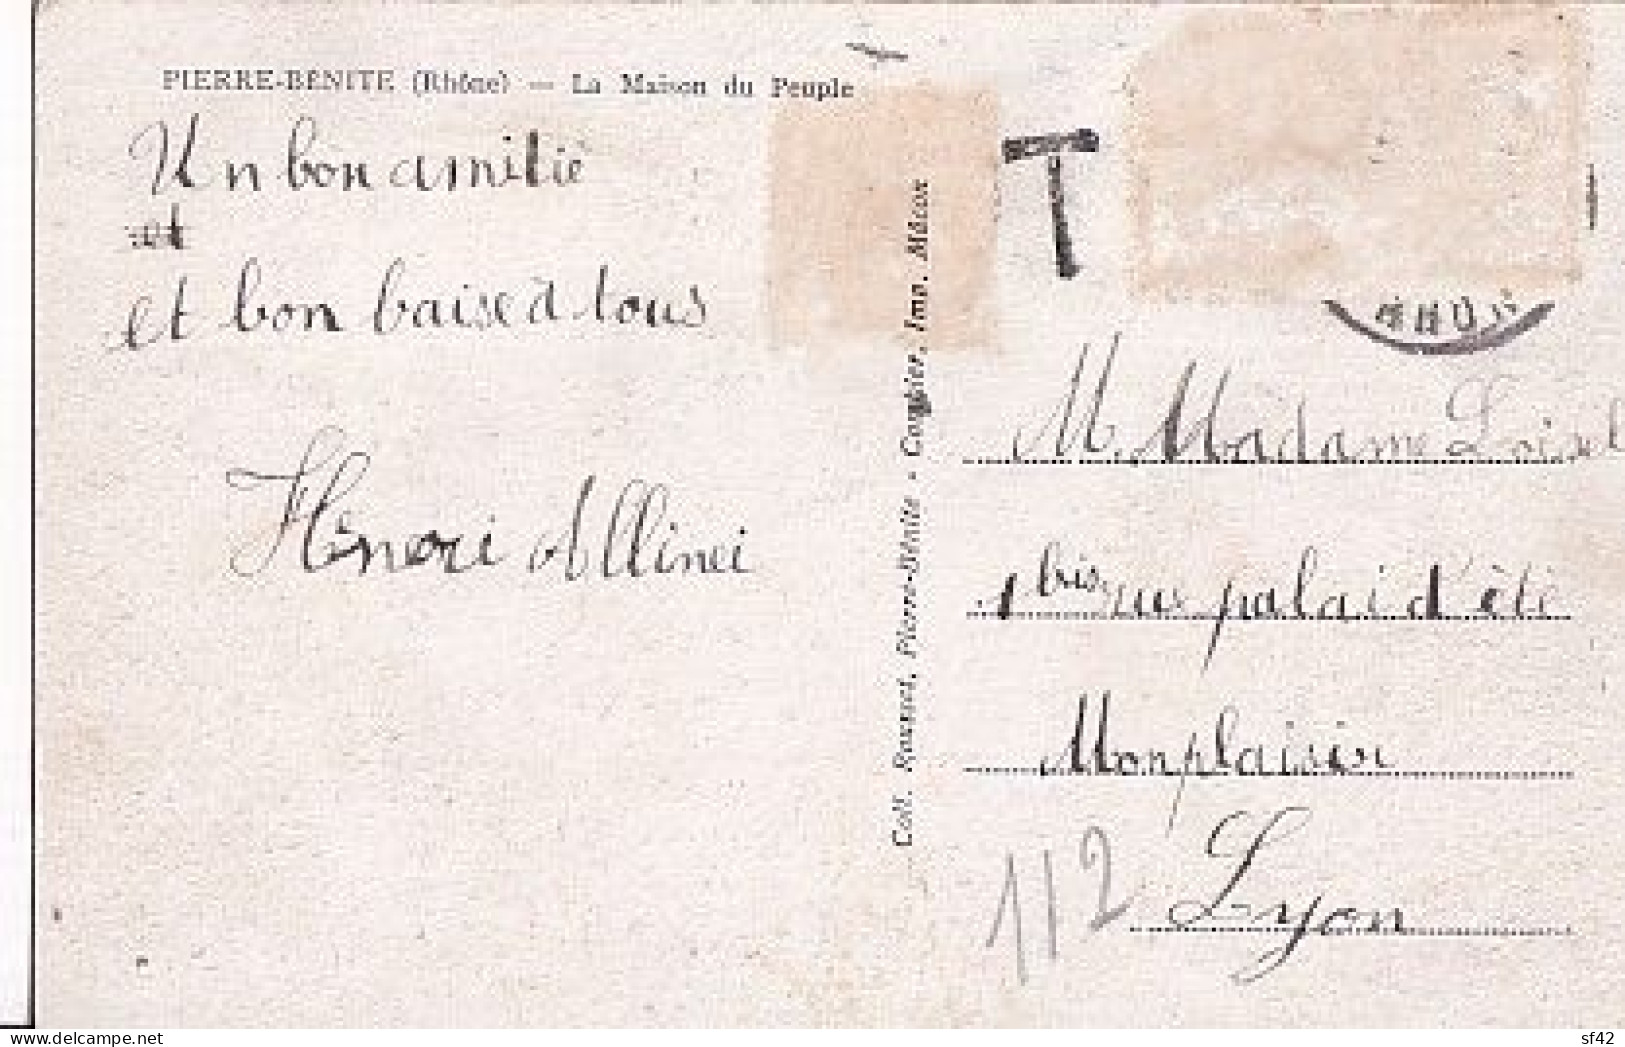 PIERRE-BÉNITE (Rhône) — La Maison du Peuple
Un bon amitié
et
et bon baise à tous
Henori Allinei
Coll. Rousset, Pierre-Bénite - Combier, Imp. Mâcon
T
RHON
M. Madame Loisel
1 bis rue palai d'été
Monplaisir
Lyon
112
delcampe.net
sf42